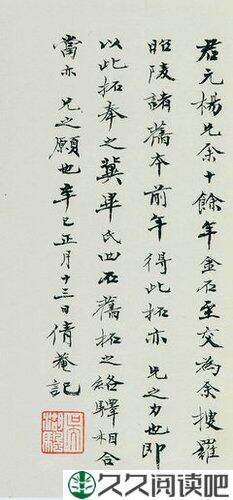 君元楊兄余十餘年金石至交為余搜羅
昭陵諸舊本前年得此拓亦 兄之力也即
以此拓奉之冀畢氏四石舊拓之絡驛相合
當亦 兄之願也辛巳正月十三日倩菴記
吳湖驅
久久阅读吧